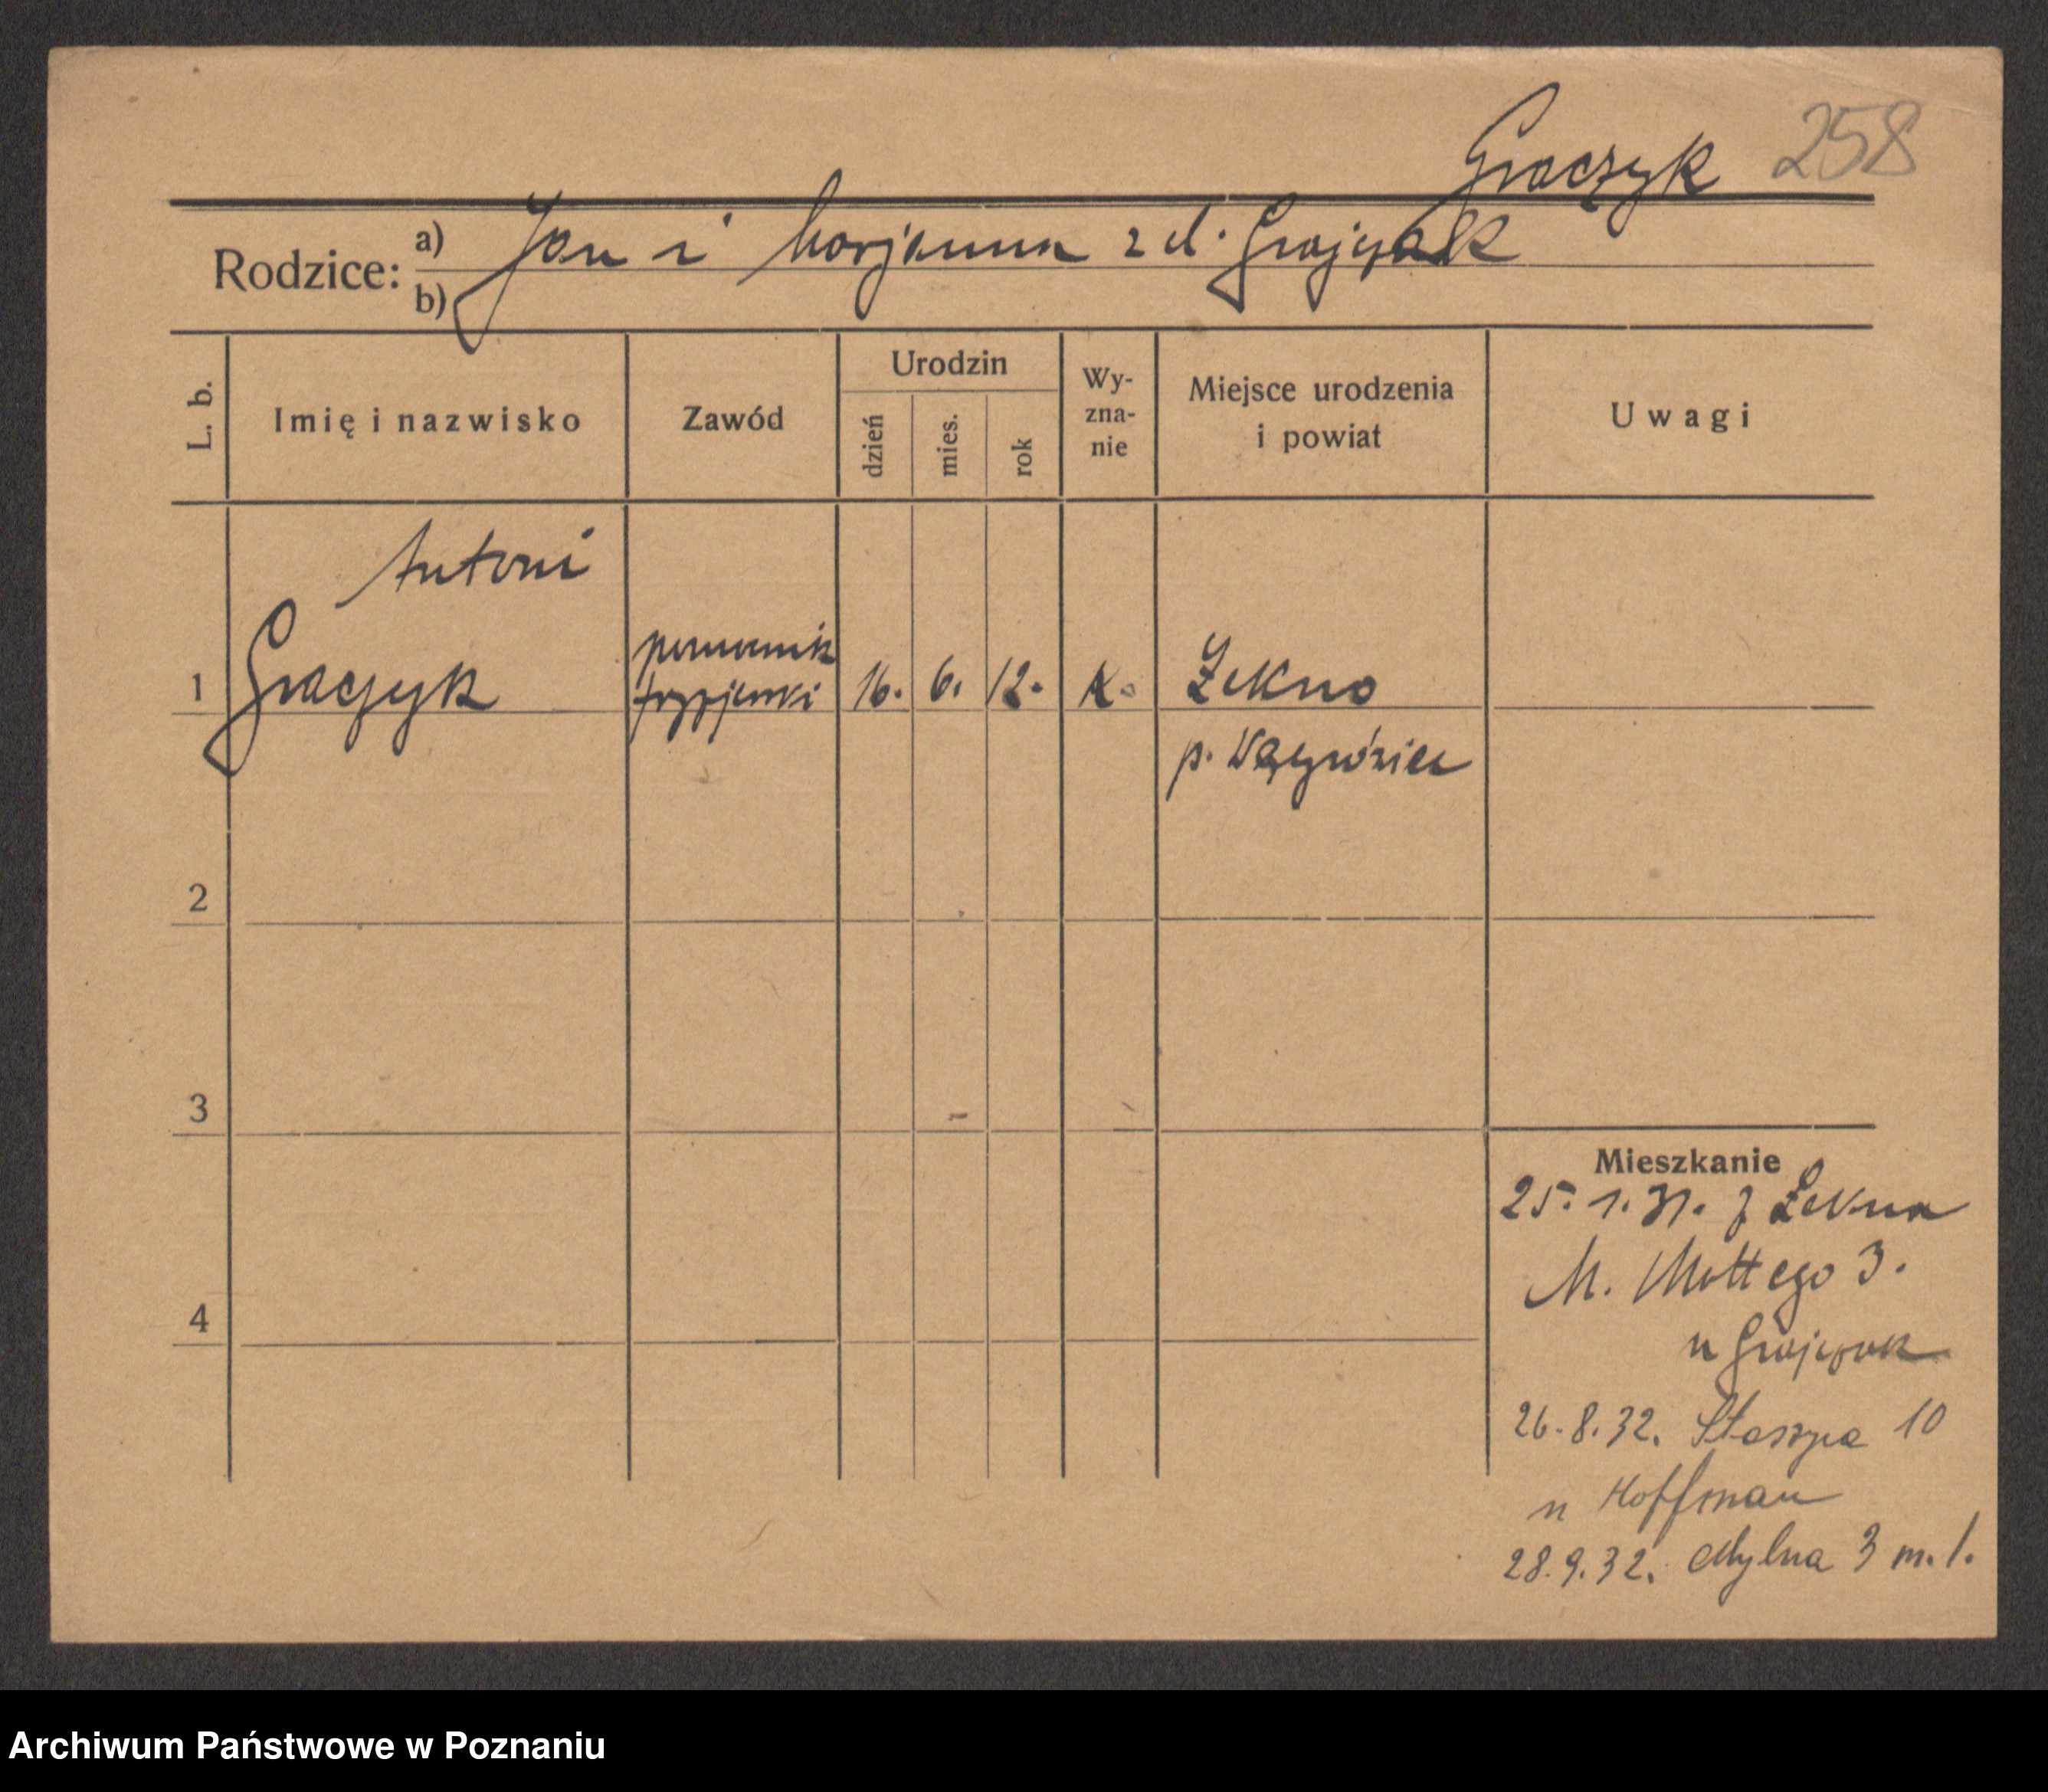 Graczyk 258
Rodzice:
a) Jan i Marjanna z d. Grajczak
b)
L. b.
Imię i nazwisko
Zawód
Urodzin
dzień
mies.
rok
Wy-
zna-
nie
Miejsce urodzenia
i powiat
Uwagi
Antoni
pomocnik
1 Graczyk fryzjerski 16. 6. 12. K. Łekno
p. Wągrówiec
2
3
4
Mieszkanie
25. 1. 31. z Łekna
M. Mottego 3.
u Grajczak
26.8.32. Staszyca 10
u Hoffman
28.9.32. Mylna 3 m. 1.
Archiwum Państwowe w Poznaniu